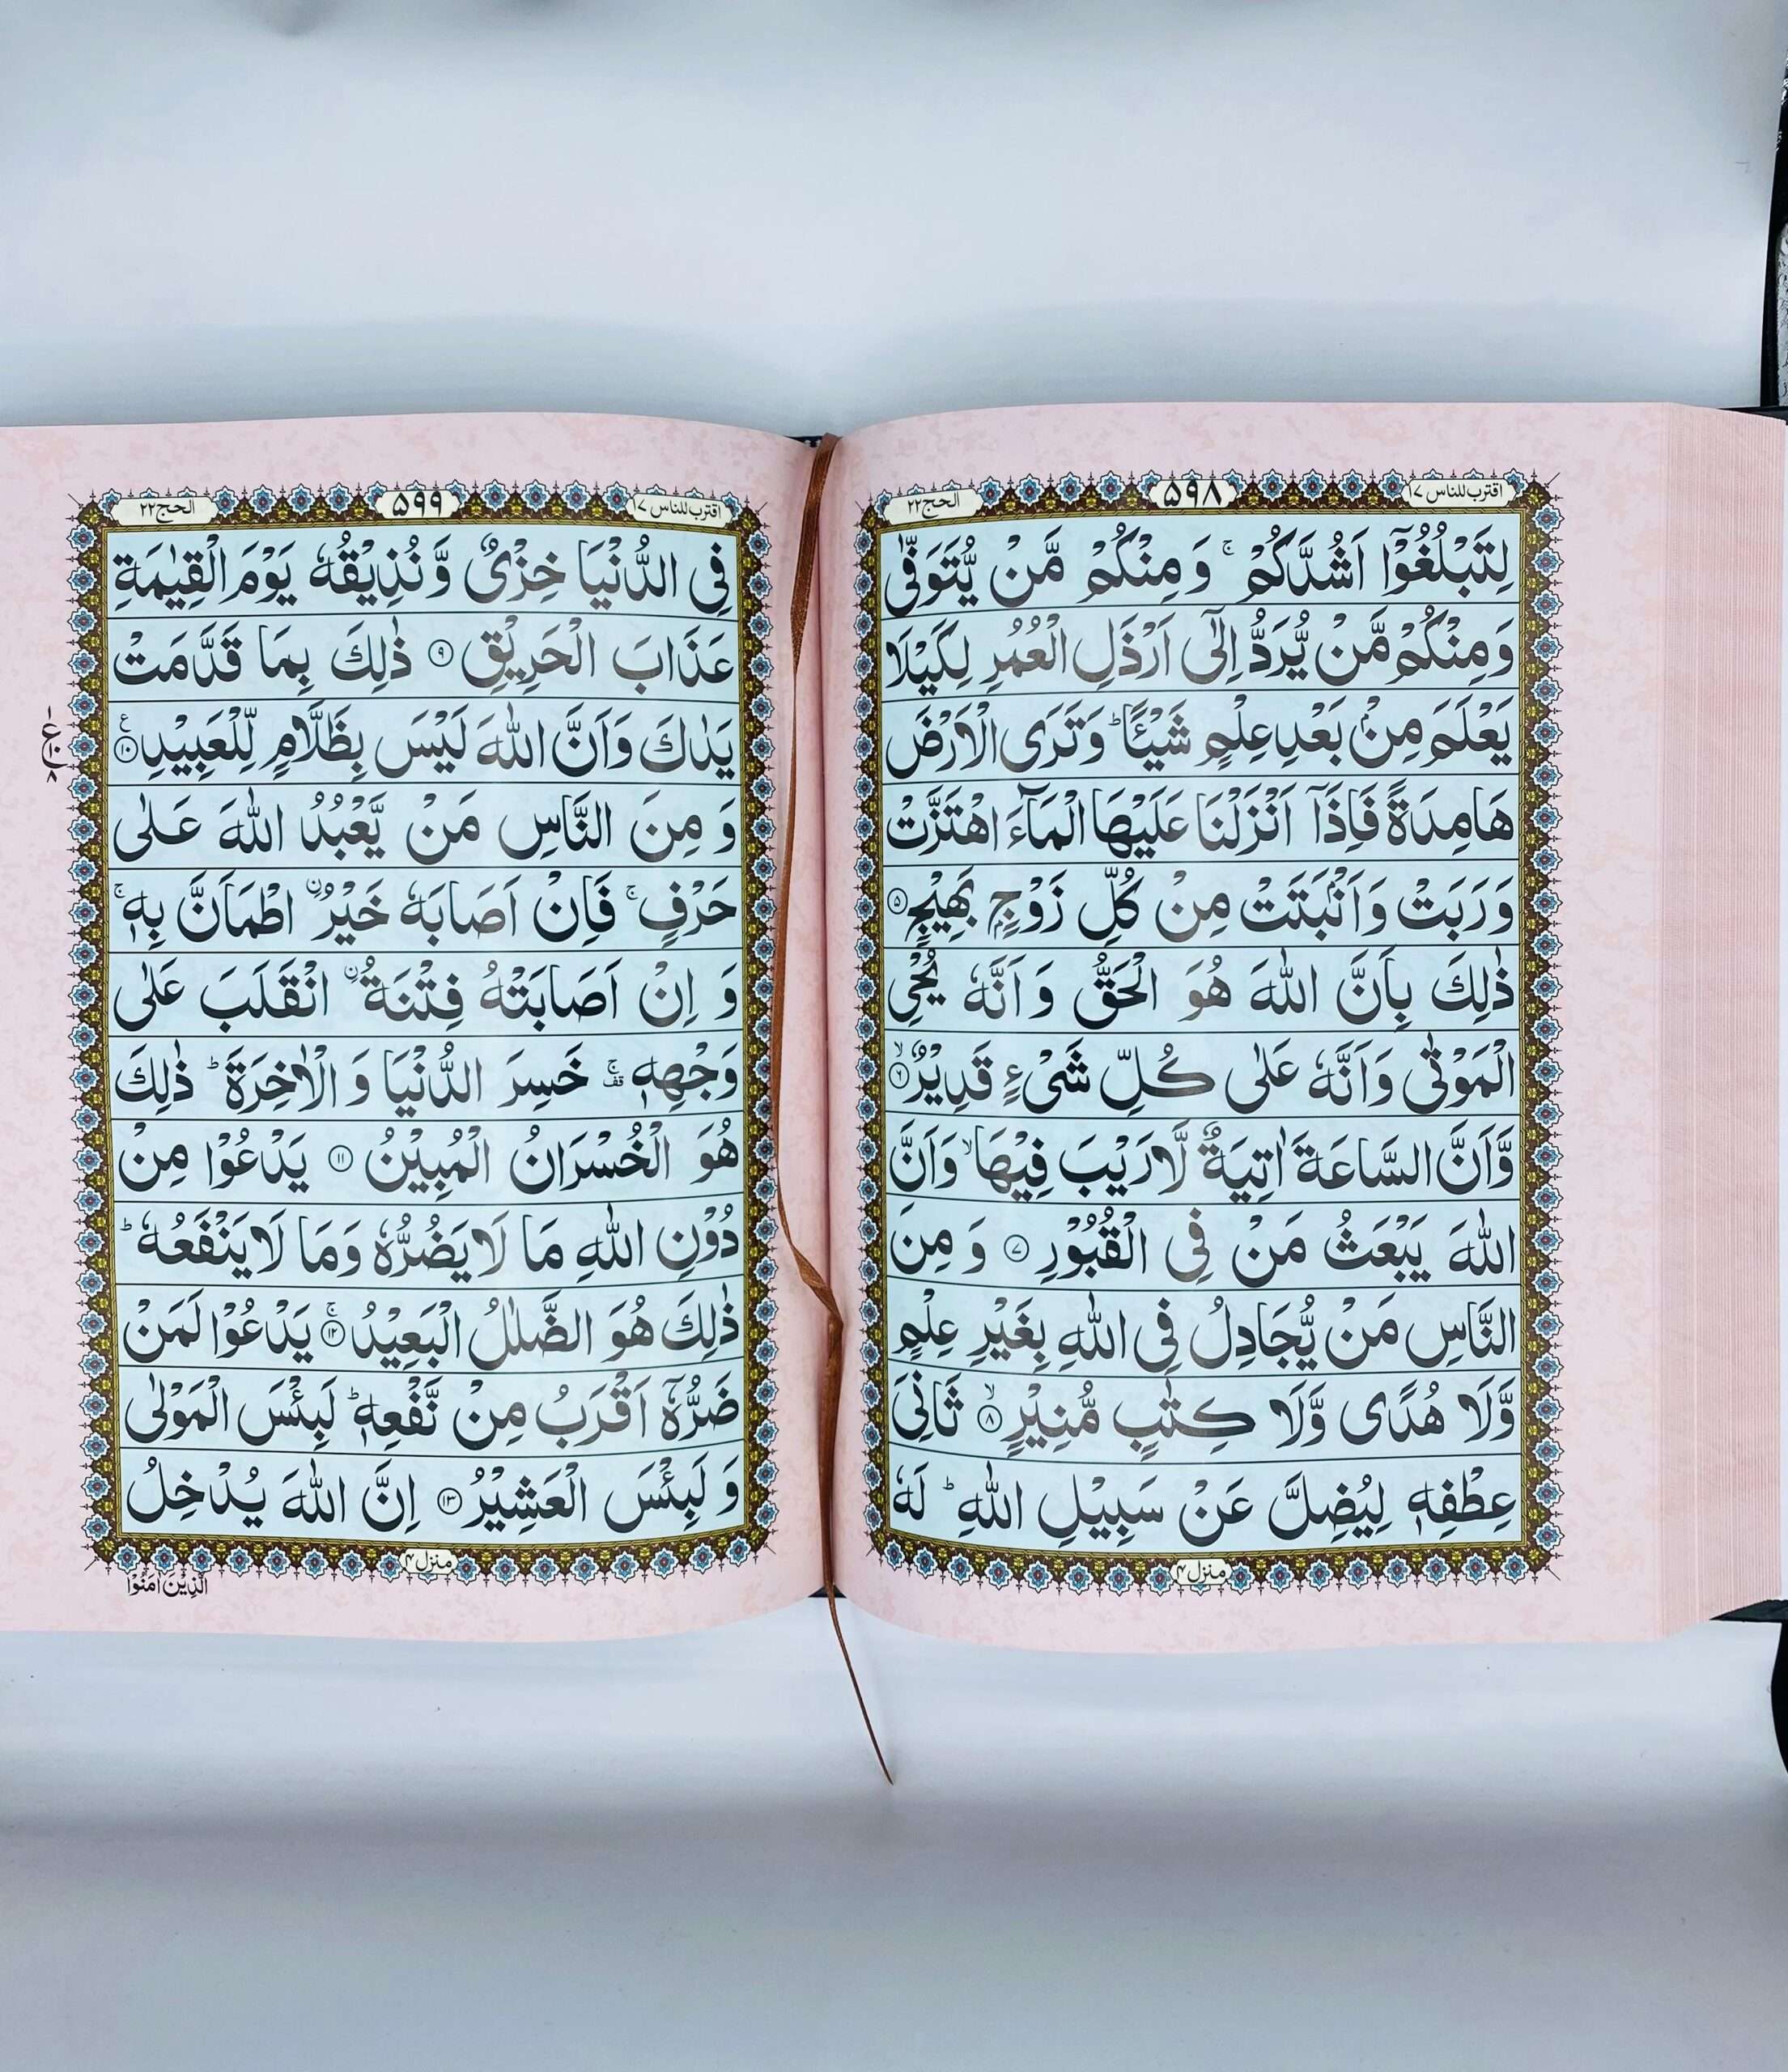 اقترب للناس ۱۷
۵۹۸
الحج ۲۲
لِتَبْلُغُوْۤا اَشُدَّكُمْ ۚ وَ مِنْكُمْ مَّنْ يُّتَوَفّٰى
وَمِنْكُمْ مَّنْ يُّرَدُّ اِلٰۤى اَرْذَلِ الْعُمُرِ لِكَيْلَا
يَعْلَمَ مِنْۢ بَعْدِ عِلْمٍ شَيْـًٔا ؕ وَتَرَى الْاَرْضَ
هَامِدَةً فَاِذَاۤ اَنْزَلْنَا عَلَيْهَا الْمَآءَ اهْتَزَّتْ
وَرَبَتْ وَاَنْۢبَتَتْ مِنْ كُلِّ زَوْجٍۭ بَهِيْجٍ ۝۵
ذٰلِكَ بِاَنَّ اللّٰهَ هُوَ الْحَقُّ وَ اَنَّهٗ يُحْيِ
الْمَوْتٰى وَاَنَّهٗ عَلٰى كُلِّ شَیْءٍ قَدِيْرٌ ۝۶ۙ
وَّاَنَّ السَّاعَةَ اٰتِيَةٌ لَّا رَيْبَ فِيْهَا ۙ وَاَنَّ
اللّٰهَ يَبْعَثُ مَنْ فِی الْقُبُوْرِ ۝۷ وَ مِنَ
النَّاسِ مَنْ يُّجَادِلُ فِی اللّٰهِ بِغَيْرِ عِلْمٍ
وَّلَا هُدًى وَّلَا كِتٰبٍ مُّنِيْرٍ ۝۸ۙ ثَانِیَ
عِطْفِهٖ لِيُضِلَّ عَنْ سَبِيْلِ اللّٰهِ ؕ لَهٗ
منزل ۴
اقترب للناس ۱۷
۵۹۹
الحج ۲۲
فِی الدُّنْيَا خِزْیٌ وَّ نُذِيْقُهٗ يَوْمَ الْقِيٰمَةِ
عَذَابَ الْحَرِيْقِ ۝۹ ذٰلِكَ بِمَا قَدَّمَتْ
يَدٰكَ وَاَنَّ اللّٰهَ لَيْسَ بِظَلَّامٍ لِّلْعَبِيْدِ ۝۱۰ع
وَ مِنَ النَّاسِ مَنْ يَّعْبُدُ اللّٰهَ عَلٰى
حَرْفٍ ۚ فَاِنْ اَصَابَهٗ خَيْرُ ۨ اطْمَاَنَّ بِهٖ ۚ
وَ اِنْ اَصَابَتْهُ فِتْنَةُ ۨ انْقَلَبَ عَلٰى
وَجْهِهٖ ۚقف خَسِرَ الدُّنْيَا وَ الْاٰخِرَةَ ؕ ذٰلِكَ
هُوَ الْخُسْرَانُ الْمُبِيْنُ ۝۱۱ يَدْعُوْا مِنْ
دُوْنِ اللّٰهِ مَا لَا يَضُرُّهٗ وَمَا لَا يَنْفَعُهٗ ؕ
ذٰلِكَ هُوَ الضَّلٰلُ الْبَعِيْدُ ۝۱۲ۚ يَدْعُوْا لَمَنْ
ضَرُّهٗۤ اَقْرَبُ مِنْ نَّفْعِهٖ ؕ لَبِئْسَ الْمَوْلٰى
وَ لَبِئْسَ الْعَشِيْرُ ۝۱۳ اِنَّ اللّٰهَ يُدْخِلُ
منزل ۴
الَّذِيْنَ اٰمَنُوْا